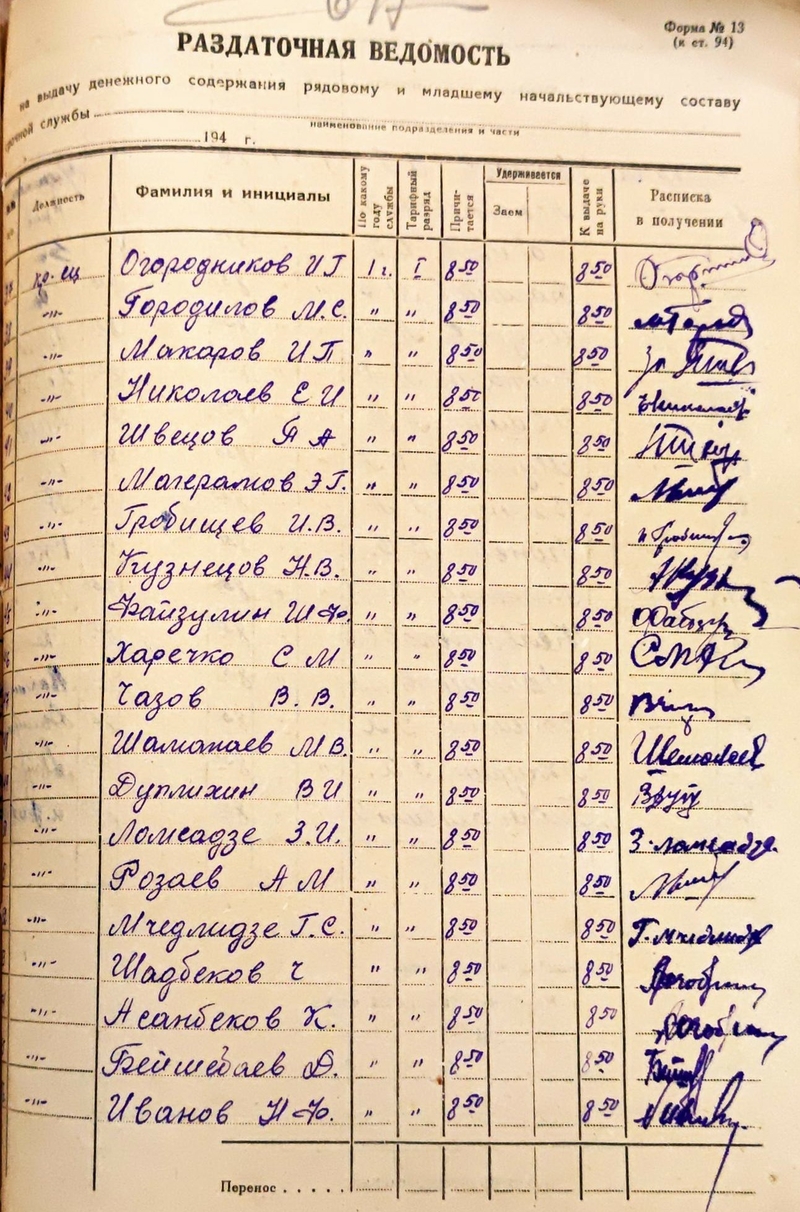 Форма № 13
(к ст. 94)
РАЗДАТОЧНАЯ ВЕДОМОСТЬ
на выдачу денежного содержания рядовому и младшему начальствующему составу
службы
наименование подразделения и части
194 г.
Должность Фамилия и инициалы По какому году службы Тарифный разряд Причитается Удерживается Заем К выдаче на руки Расписка в получении
кр-ец Огородников И Г 1 г. I 8 50 8 50
-"- Городилов М.С. " " 8 50 8 50
-"- Макаров И П " " 8 50 8 50 За
-"- Николаев Е И " " 8 50 8 50
-"- Швецов П А " " 8 50 8 50
-"- Магерамов Э Г. " " 8 50 8 50
-"- Гробищев И.В. " " 8 50 8 50
-"- Кузнецов Н.В. " " 8 50 8 50
-"- Файзулин Ш Ф. " " 8 50 8 50
-"- Харечко С М " " 8 50 8 50
-"- Чазов В. В. " " 8 50 8 50
-"- Шаманаев М В. " " 8 50 8 50
-"- Дуплихин В И " " 8 50 8 50
-"- Ломсадзе З.И. " " 8 50 8 50 З. Ломсадзе
-"- Розаев А М " " 8 50 8 50
-"- Мчедлидзе Г. С. " " 8 50 8 50 Г. Мчедлидзе
-"- Шадбеков Ч " " 8 50 8 50
-"- Асанбеков К. " " 8 50 8 50
-"- Бейшебаев Д. " " 8 50 8 50
-"- Иванов Н Ф. " " 8 50 8 50
Перенос . . . . .